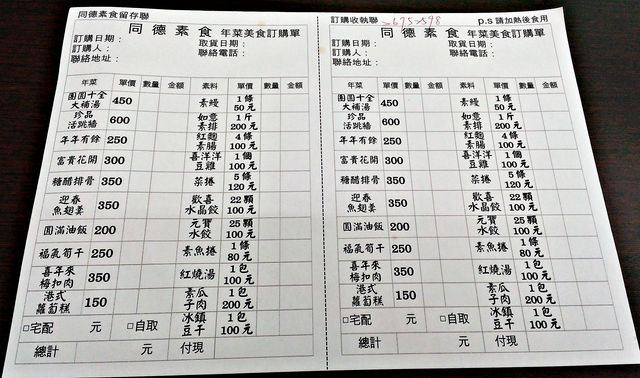 同德素食留存聯
同德素食 年菜美食訂購單
訂購日期： 取貨日期：
訂購人： 聯絡電話：
聯絡地址：
年菜 單價 數量 金額 素料 單價 數量 金額
團圓十全大補湯 450 素鰻 1條50元
珍品活跳牆 600 如意素排 1斤200元
年年有餘 250 紅麴素腸 4條100元
富貴花開 300 喜洋洋豆雞 1個100元
糖醋排骨 350 菜捲 5條120元
迎春魚翅羹 350 歡喜水晶餃 22顆100元
圓滿油飯 200 元寶水餃 25顆100元
福氣筍干 250 素魚捲 1條80元
喜年來梅扣肉 350 紅燒湯 1包100元
港式蘿蔔糕 150 素瓜子肉 1包200元
□宅配 元 □自取 冰鎮豆干 1包100元
總計 元 付現
訂購收執聯 2675-2598 p.s 請加熱後食用
同德素食 年菜美食訂購單
訂購日期： 取貨日期：
訂購人： 聯絡電話：
聯絡地址：
年菜 單價 數量 金額 素料 單價 數量 金額
團圓十全大補湯 450 素鰻 1條50元
珍品活跳牆 600 如意素排 1斤200元
年年有餘 250 紅麴素腸 4條100元
富貴花開 300 喜洋洋豆雞 1個100元
糖醋排骨 350 菜捲 5條120元
迎春魚翅羹 350 歡喜水晶餃 22顆100元
圓滿油飯 200 元寶水餃 25顆100元
福氣筍干 250 素魚捲 1條80元
喜年來梅扣肉 350 紅燒湯 1包100元
港式蘿蔔糕 150 素瓜子肉 1包200元
□宅配 元 □自取 冰鎮豆干 1包100元
總計 元 付現